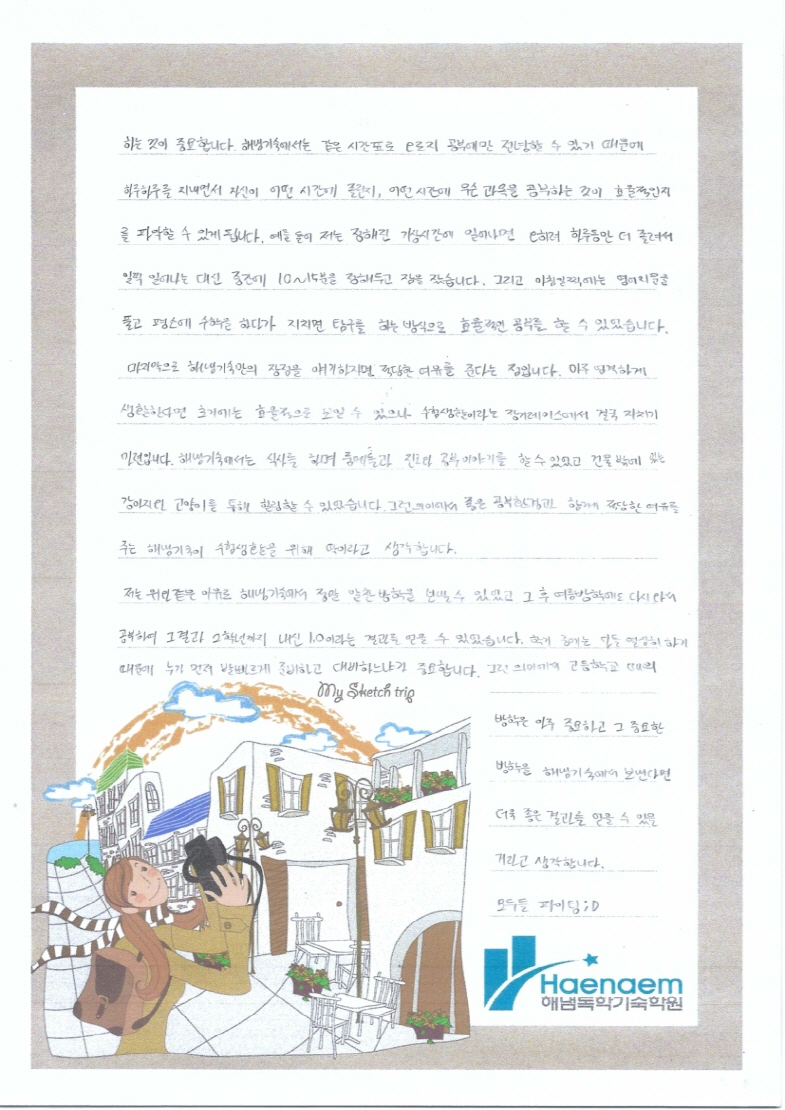 하는 것이 중요합니다. 해냄기숙에서는 같은 시간표로 오로지 공부에만 전념할 수 있기 때문에
하루하루를 지내면서 자신이 어떤 시간에 졸린지, 어떤 시간에 무슨 과목을 공부하는 것이 효율적인지
를 파악할 수 있게 됩니다. 예를 들어 저는 정해진 기상시간에 일어나면 오히려 하루동안 더 졸려서
일찍 일어나는 대신 중간에 10~15분을 정해두고 잠을 잤습니다. 그리고 아침일찍에는 영어지문을
풀고 평소에 수학을 하다가 지치면 탐구를 하는 방식으로 효율적인 공부를 할 수 있었습니다.
마지막으로 해냄기숙만의 장점을 얘기하자면 적당한 여유를 준다는 점입니다. 아주 엄격하게
생활한다면 초기에는 효율적으로 보일 수 있으나 수험생활이라는 장거리레이스에서 결국 지치기
마련입니다. 해냄기숙에서는 식사를 하며 룸메들과 진로나 공부이야기를 할 수 있었고 건물 밖에 있는
강아지와 고양이를 통해 힐링할 수 있었습니다. 그런 의미에서 좋은 공부환경과 함께 적당한 여유를
주는 해냄기숙이 수험생활을 위해 딱이라고 생각합니다.
저는 위와 같은 이유로 해냄기숙에서 정말 알찬 방학을 보낼 수 있었고 그 후 여름방학에도 다시 와서
공부하여 그 결과 2학년까지 내신 1.0이라는 결과를 얻을 수 있었습니다. 학기 중에는 모두 열심히 하기
때문에 누가 먼저 발빠르게 준비하고 대비하느냐가 중요합니다. 그런 의미에서 고등학교 때의
방학은 아주 중요하고 그 중요한
방학을 해냄기숙에서 보낸다면
더욱 좋은 결과를 얻을 수 있을
거라고 생각합니다.
모두들 파이팅;D
My Sketch trip
Haenaem
해냄독학기숙학원